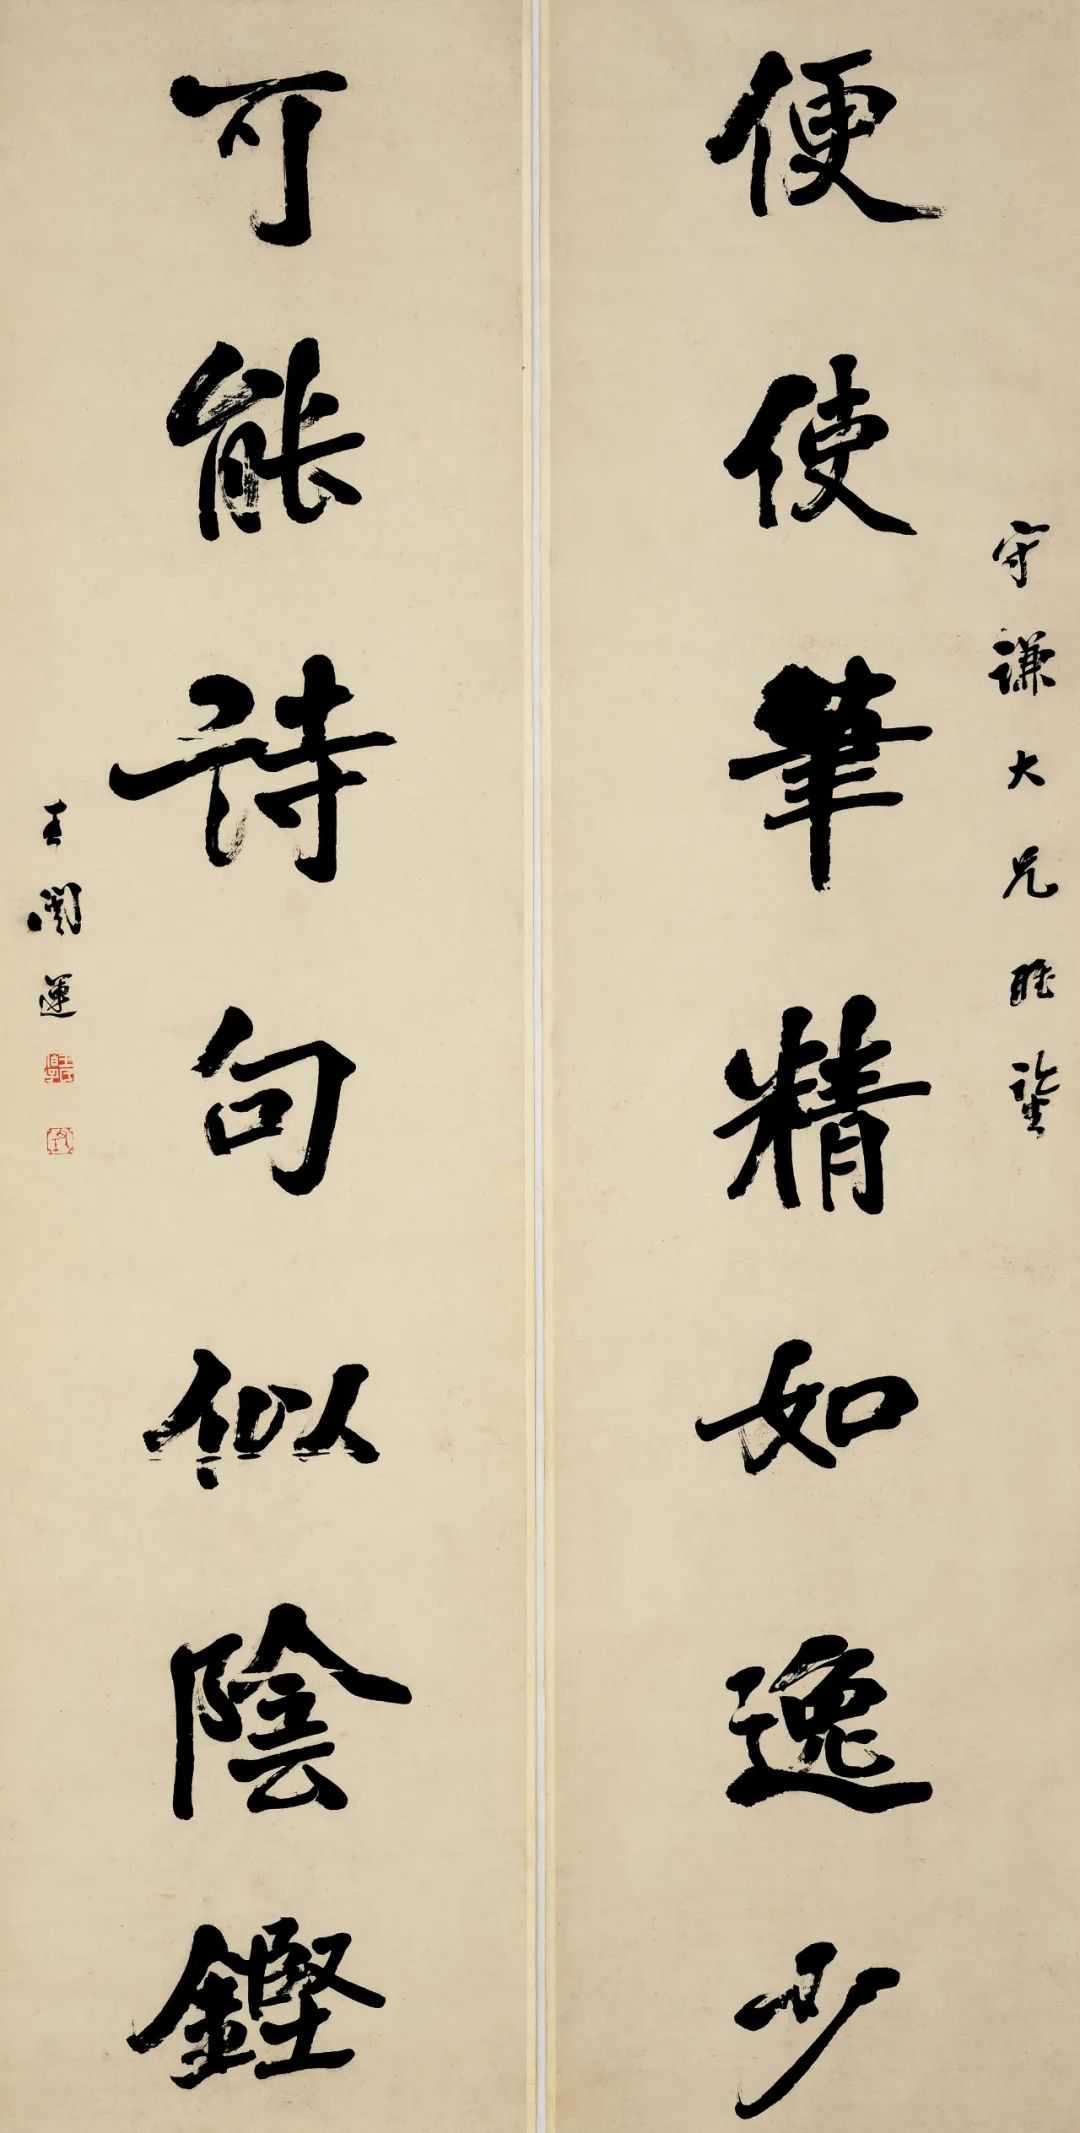 守謙大兄雅鑒
便使筆精如逸少
可能詩句似陰鏗
王闓運